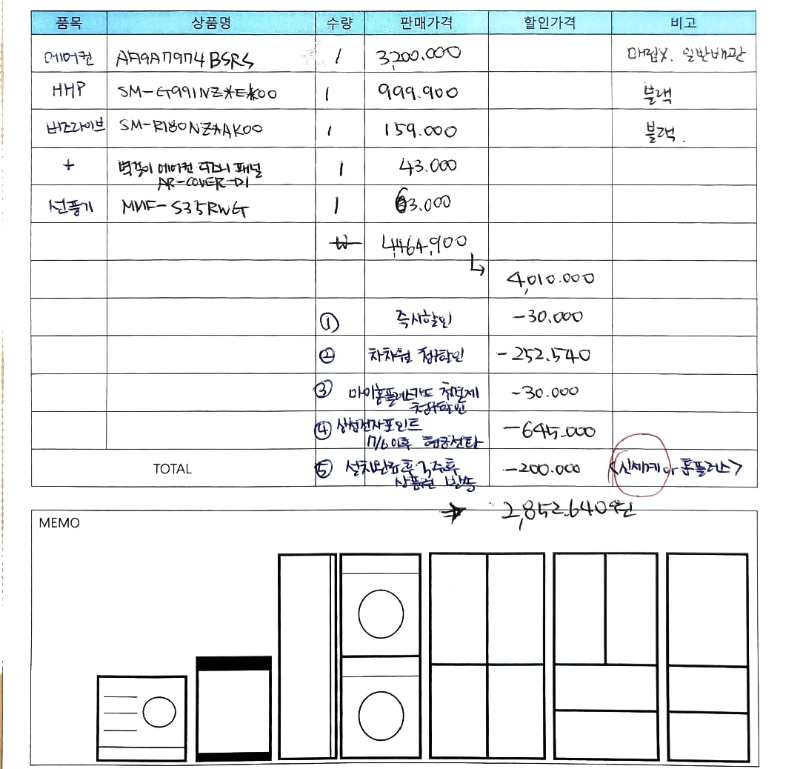 품목 상품명 수량 판매가격 할인가격 비고
에어컨 AF19A7974BSRS 1 3,200.000 매립X. 일반배관
HHP SM-G991NZ*E*K00 1 999.900 블랙
버즈라이브 SM-R180NZ*AK00 1 159.000 블랙.
+ 벽걸이 에어컨 디스니 패널 1 43.000
AR-COVER-D1
선풍기 MMF-S35RWG 1 63.000
₩ 4,464,900
↳ 4,010.000
① 즉시할인 -30.000
② 청구할인 -252.540
③ 마이홈플러스카드 결제 -30.000
청구할인
④ 삼성전자포인트 -645.000
이후
⑤ 설치완료후 -200.000 <신세계 or 홈플러스>
상품권 발송
TOTAL
→ 2,852.640원
MEMO